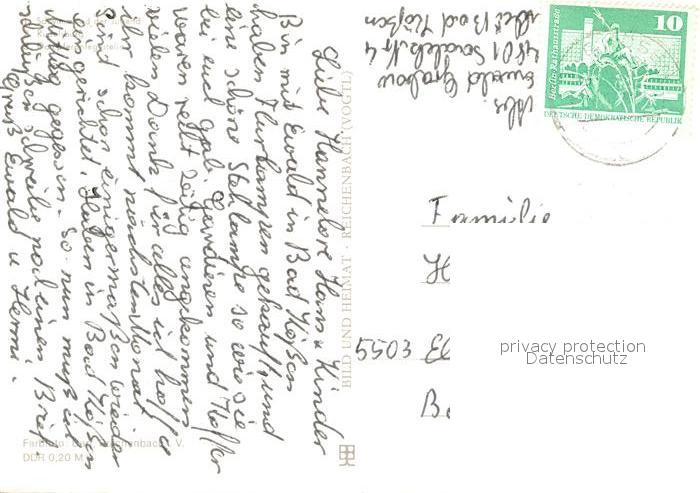 Liebe Hannelore Hans u Kinder
Bin mit Ewald in Bad Kösen
haben Flurlampen gekauft und
eine schöne Stehlampe so wie sie
bei euch gab. Gardienen und Koffer
waren selbt zeitig angekommen
vielen Dank für alles ich hoffe
Ihr kommt nächsten Monat
sind schon einigermaßen wieder
eingerichtet. Haben in Bad Kösen
Mittag gegessen. So nun muß ich
schließen schreibe noch einen Brief.
Gruß Ewald u
Abs.
Ewald Grabow
4801 Saaleck Nr 4
über Bad Kösen
BILD UND HEIMAT · REICHENBACH (VOGTL)
10
Berlin Rathausstraße
DEUTSCHE DEMOKRATISCHE REPUBLIK
Familie
H
5503 El
B
privacy protection
Datenschutz
Farbfoto:
DDR 0,20 M